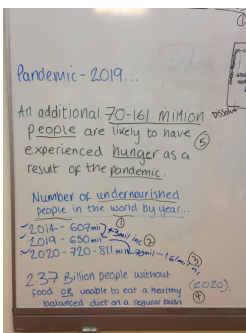 Dissolve
Pandemic - 2019...
An additional 70-161 million
people are likely to have
experienced hunger as a
result of the pandemic.
5
Number of undernourished
people in the world by year...
1
2014 - 607mil
2019 - 650mil +43mil inc 2
2020 - 720 - 811 mil 70mil - 161mil inc 3
2.37 Billion people without (2020).
food OR unable to eat a healthy 4
balanced diet on a regular basis